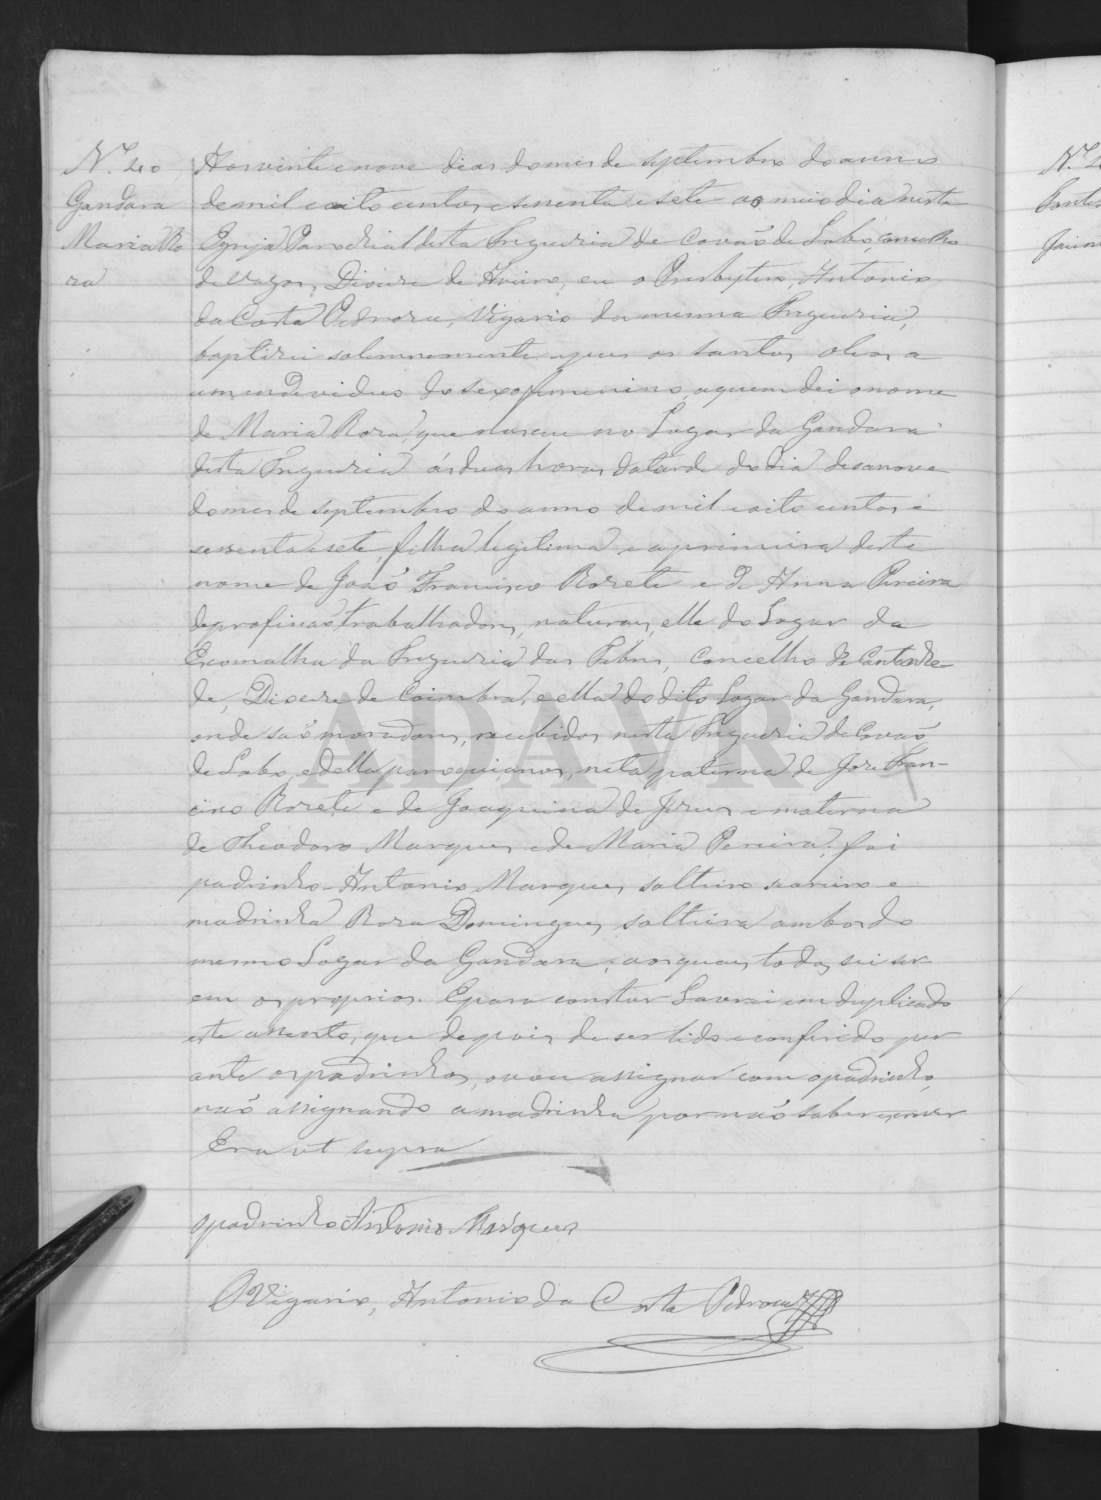 N.º 40
Gandara
Maria Ro
za
Aos vinte e nove dias do mes de septembro do anno
de mil e oito centos e sessenta e sete ao meio dia nesta
Egreja Parochial desta Freguezia de Covaõ de Lobo, concelho
de Vagos, Diocese de Aveiro, eu o Presbytero, Antonio
da Costa Pedroza, Vigario da mesma Freguezia,
baptizei solemnemente e puz os santos oleos a
um endividuo do sexo femenino, a quem dei o nome
de Maria Roza, que nasceu no Logar da Gandara
desta Freguezia ás duas horas da tarde do dia desanove
do mes de septembro do anno de mil e oito centos e
sessenta e sete, filha legitima e a primeira deste
nome de Joaõ Francisco Rozete e de Anna Pereira
de profissaõ trabalhadores, naturaes, elle do Logar da
Escomalha da Freguezia das Febres, Concelho de Cantanhe
de, Diocese de Coimbra, e ella do dito Logar da Gandara,
onde saõ moradores, recebidos nesta Freguezia de Covaõ
de Lobo, e della paroquianos, neta paterna de Joze Fran-
cisco Rozete e de Joaquina de Jezus e materna
de Theodoro Marques e de Maria Pereira; foi
padrinho Antonio Marques, solteiro e
madrinha Roza Domingues, solteira ambos do
mesmo Logar da Gandara, os quaes todos sei ser
em os proprios. E para constar Lavrei em duplicado
este assento, que depois de ser lido e conferido per
ante os padrinhos, o vou assignar com o padrinho,
naõ assignando a madrinha por naõ saber escrever
Era ut supra
o padrinho Antonio Marques
O Vigario, Antonio da Costa Pedroza
ADAVR
N.º